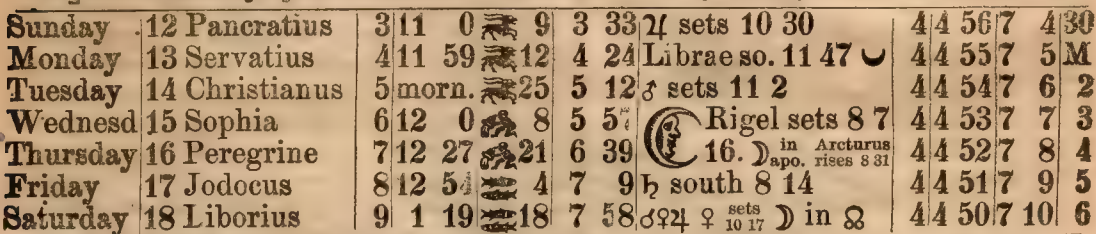 Sunday 12 Pancratius 3 11 0 9 3 33 ♃ sets 10 30 4 4 56 7 4 30
Monday 13 Servatius 4 11 59 12 4 24 Librae so. 11 47 4 4 55 7 5 M
Tuesday 14 Christianus 5 morn. 25 5 12 ♂ sets 11 2 4 4 54 7 6 2
Wednesd 15 Sophia 6 12 0 8 5 57 Rigel sets 8 7 4 4 53 7 7 3
Thursday 16 Peregrine 7 12 27 21 6 39 16. ☽ in apo. Arcturus rises 8 31 4 4 52 7 8 4
Friday 17 Jodocus 8 12 54 4 7 9 ♄ south 8 14 4 4 51 7 9 5
Saturday 18 Liborius 9 1 19 18 7 58 ☌♀♃ ♀ sets 10 17 ☽ in ☊ 4 4 50 7 10 6